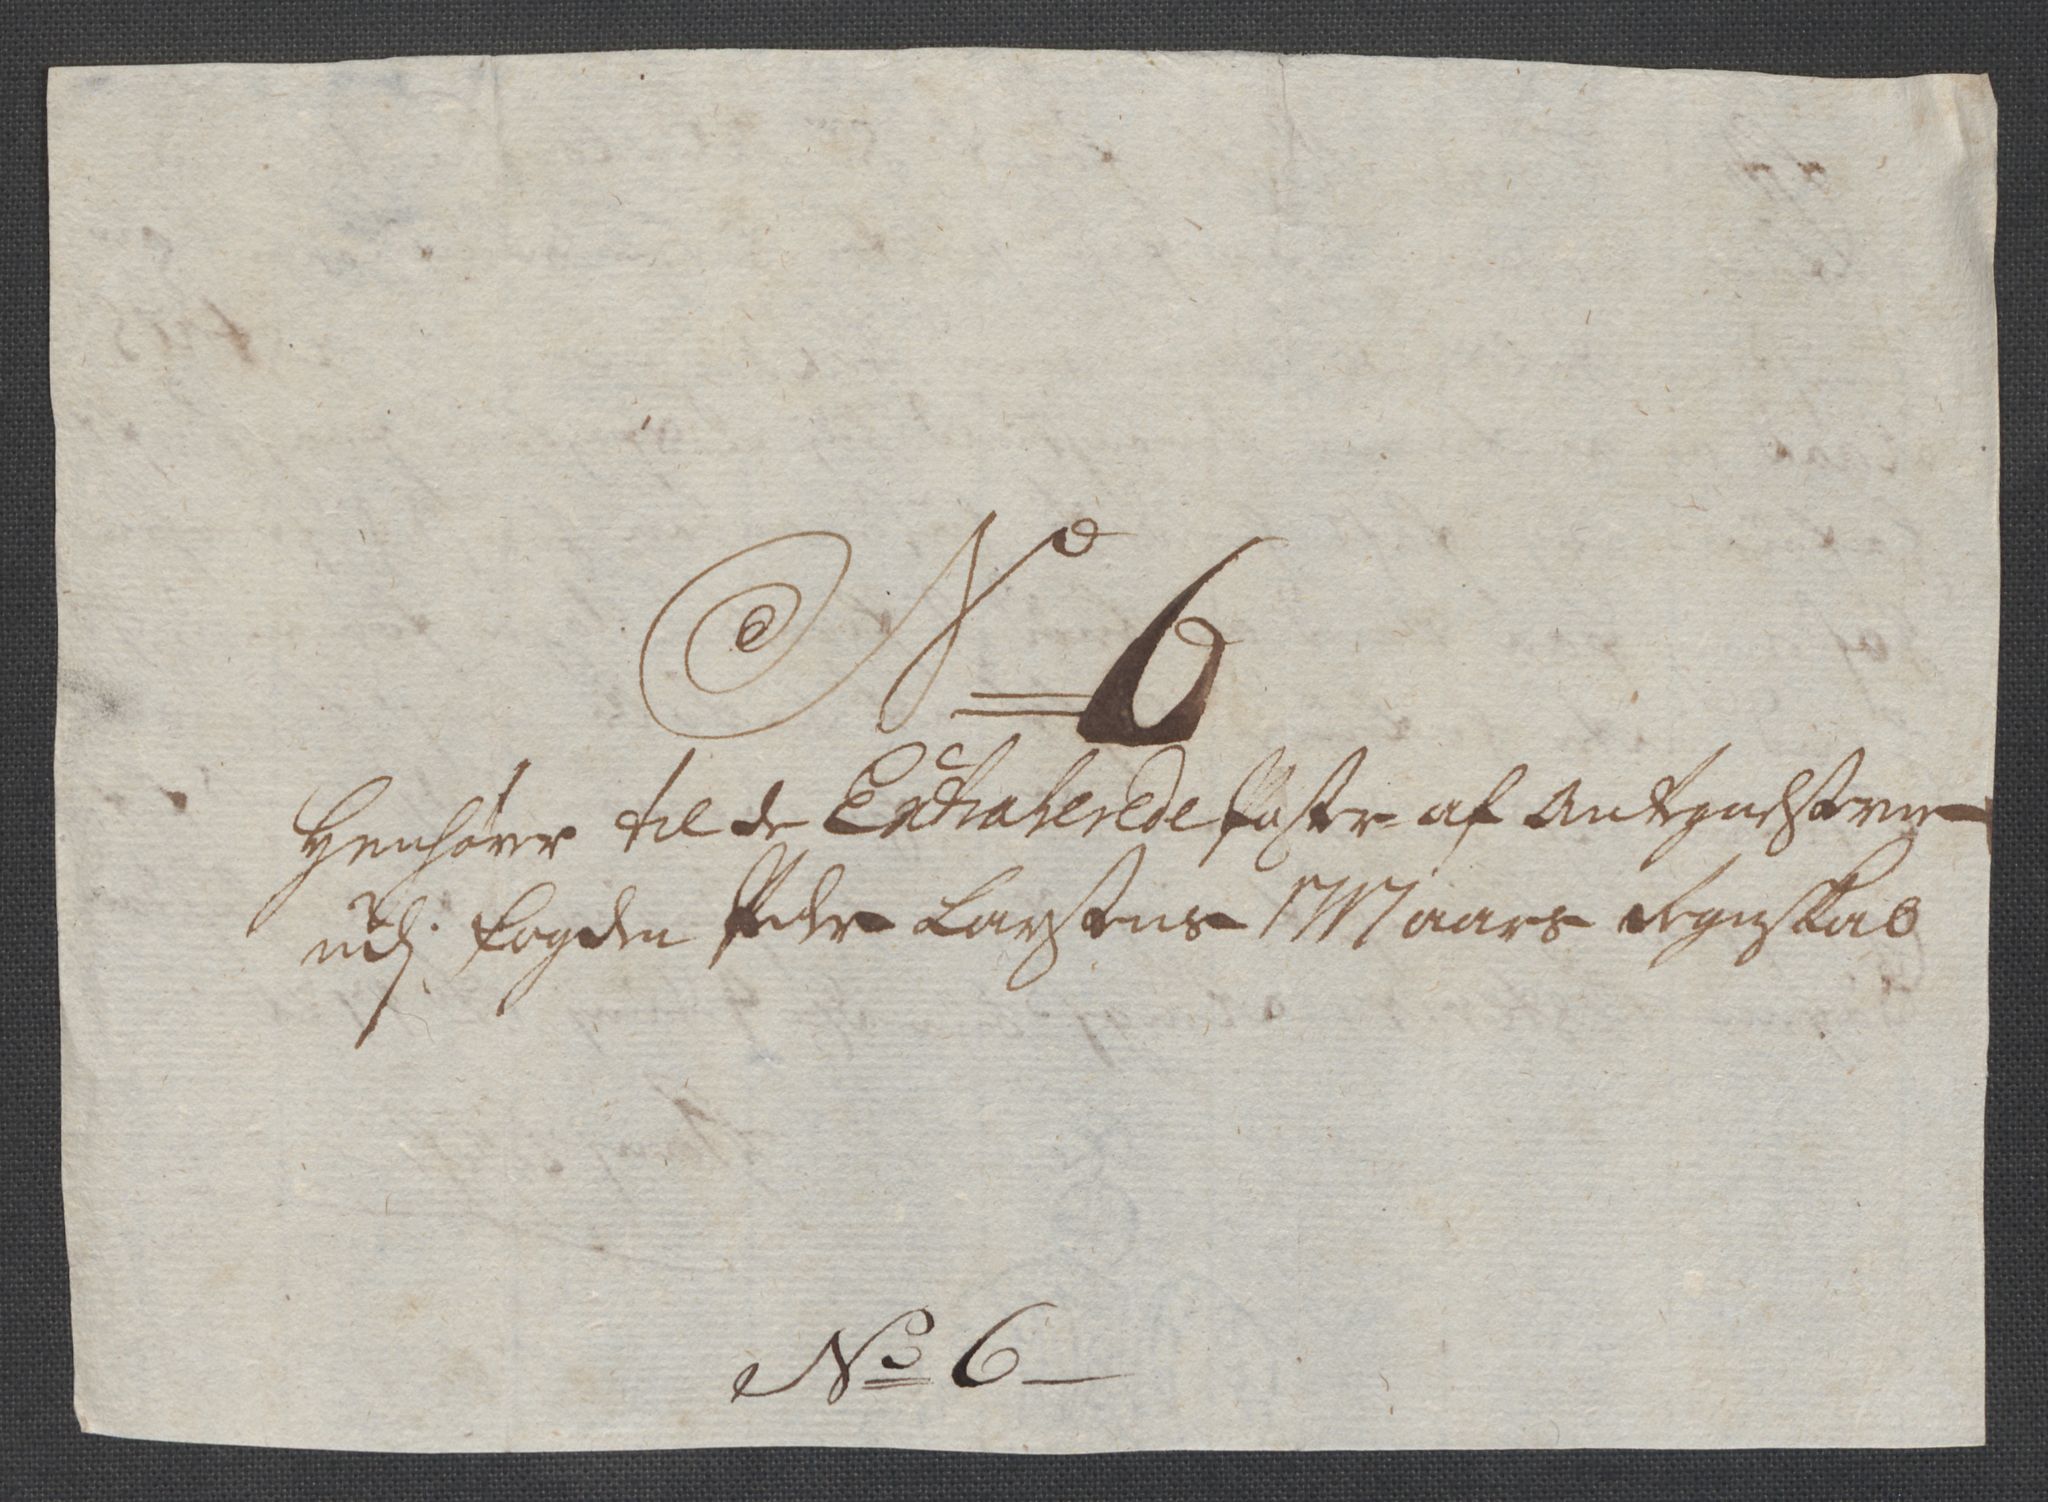 No 6
Henhører til de Extraherede Poster af Antegnelserne
udj Fogden Peder Larsens Maars Regnskab
No 6